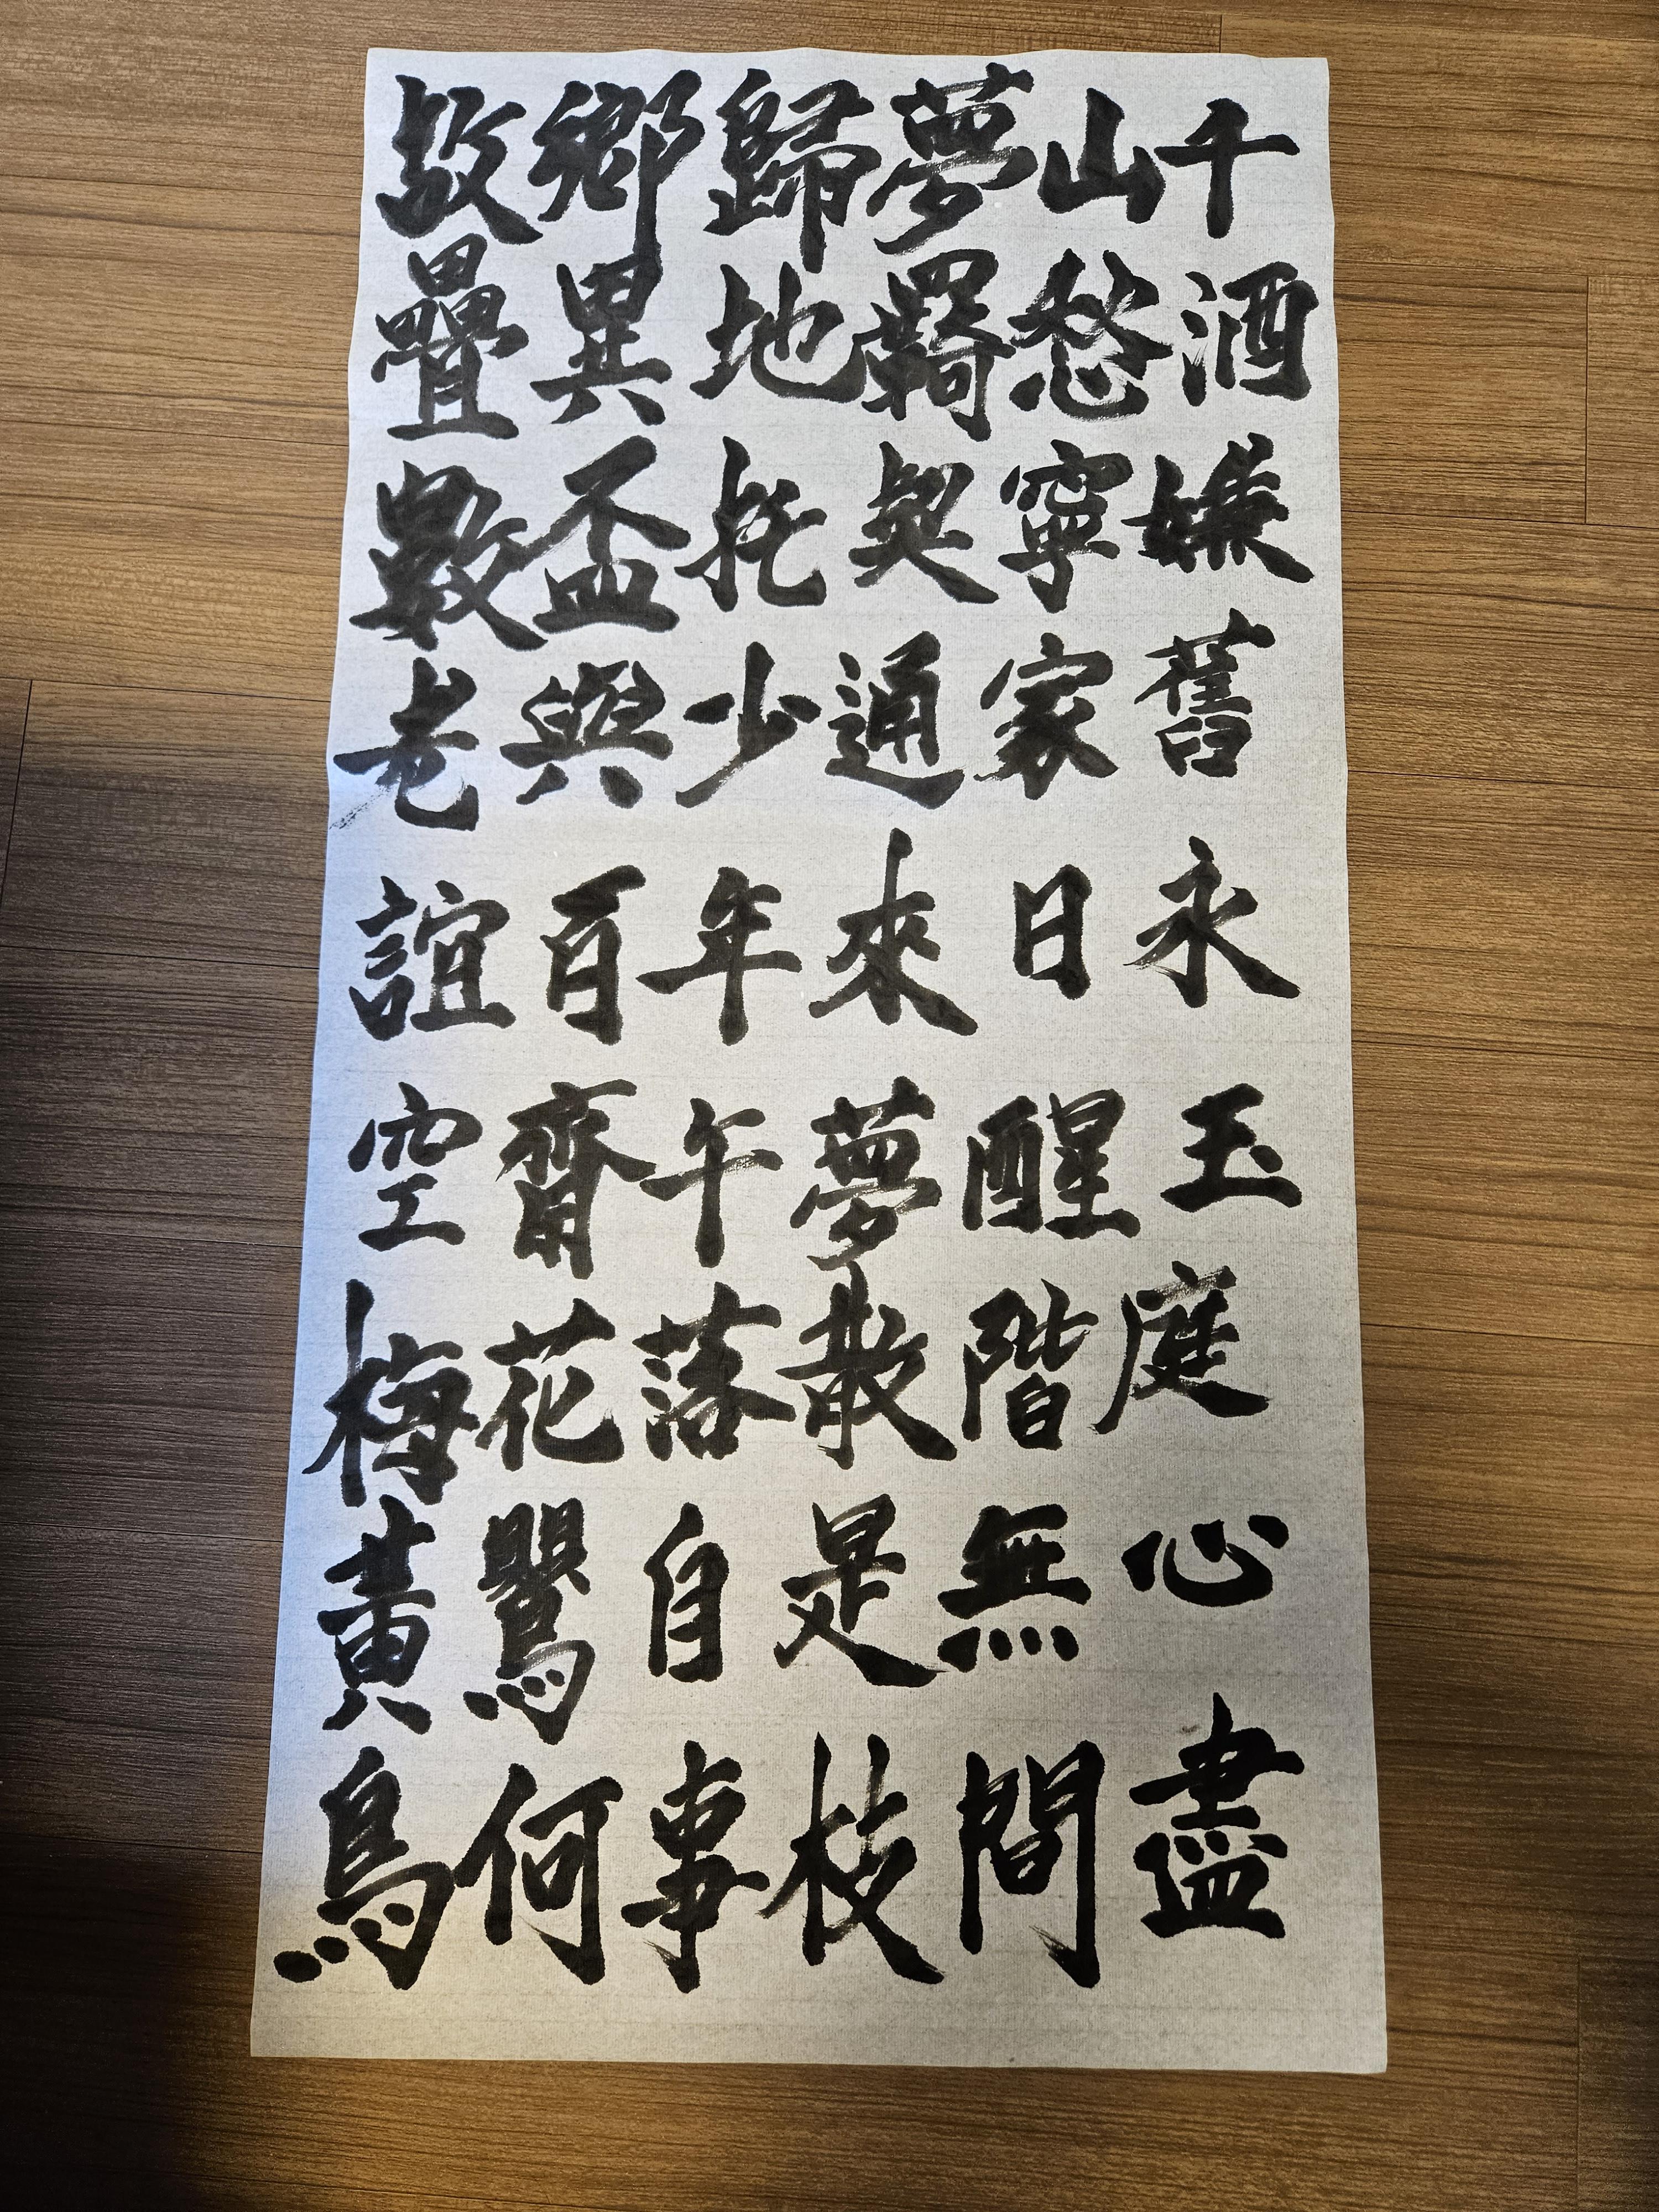 故鄉歸夢山千
疊異地羇愁酒
數盃托契寧嫌
老與少通家舊
誼百年來日永
空齋午夢醒玉
梅花落散階庭
黃鶯自是無心
鳥何事枝間盡